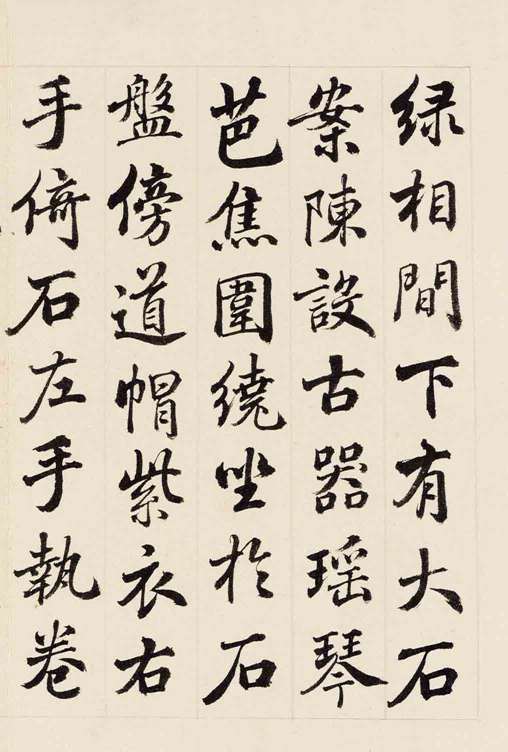 绿相間下有大石
案陳設古器瑶琴
芭焦圍繞坐於石
盤傍道帽紫衣右
手倚石左手執卷